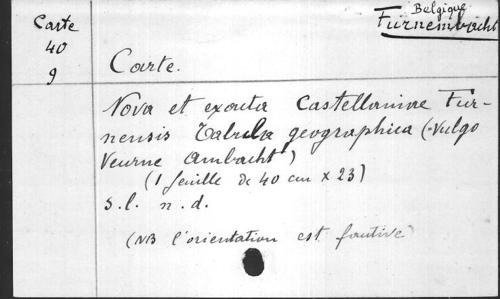 Belgique
Furnembacht
Carte
40
9
Carte.
Nova et exacta Castellaniae Fur-
nensis Tabula geographica (vulgo
Veurne Ambacht)
(1 feuille de 40 cm x 23)
s.l. n.d.
(NB l'orientation est fautive